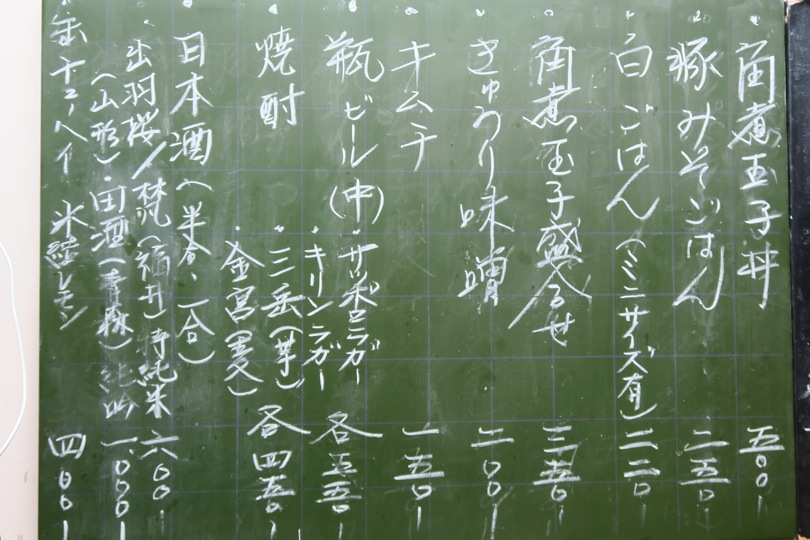 角煮玉子丼 五〇〇-
豚みそごはん 二五〇-
白ごはん(ミニサイズ有) 二二〇-
角煮玉子盛合せ 三五〇-
きゅうり味噌 二〇〇-
キムチ 一五〇-
瓶ビール(中)・サッポロラガー
・キリンラガー 各五五〇-
焼酎 ・三岳(芋)
・金宮(麦) 各四五〇-
日本酒(半合、一合)
出羽桜/梵(福井)特純米 六〇〇
(山形)・田酒(青森)純吟 一、〇〇〇-
缶チューハイ 氷結レモン 四〇〇-